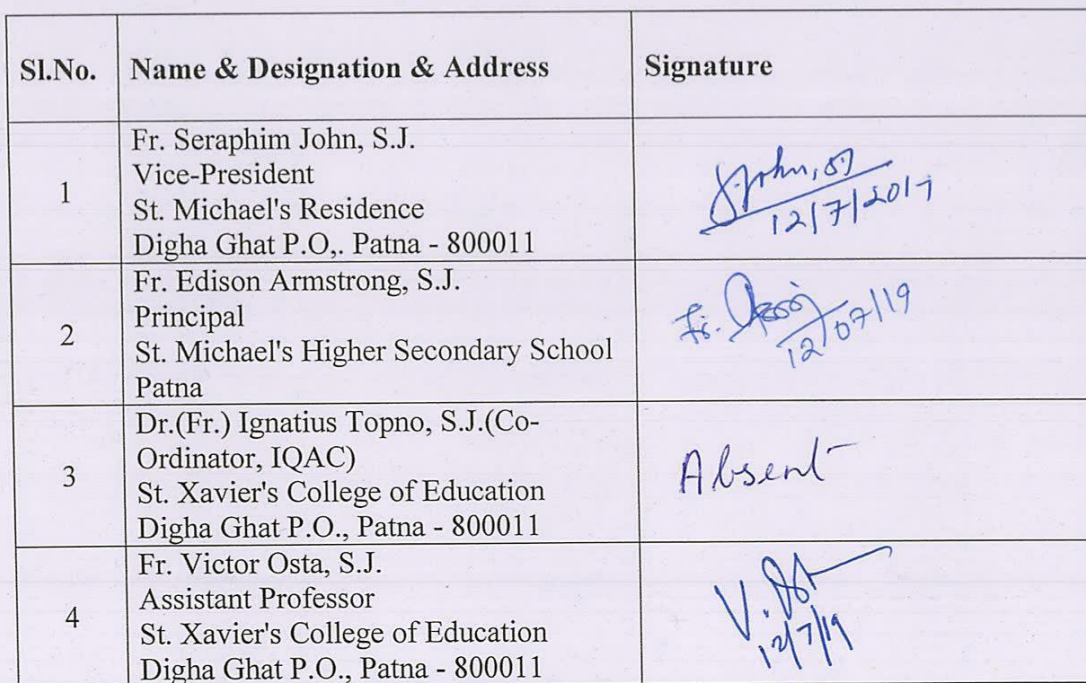 Sl.No. Name & Designation & Address Signature
1
Fr. Seraphim John, S.J.
Vice-President
St. Michael's Residence
Digha Ghat P.O,. Patna - 800011
S.John, SJ
12/7/2019
2
Fr. Edison Armstrong, S.J.
Principal
St. Michael's Higher Secondary School
Patna
Fr.
12/07/19
3
Dr.(Fr.) Ignatius Topno, S.J.(Co-
Ordinator, IQAC)
St. Xavier's College of Education
Digha Ghat P.O., Patna - 800011
Absent
4
Fr. Victor Osta, S.J.
Assistant Professor
St. Xavier's College of Education
Digha Ghat P.O., Patna - 800011
V. Osta
12/7/19